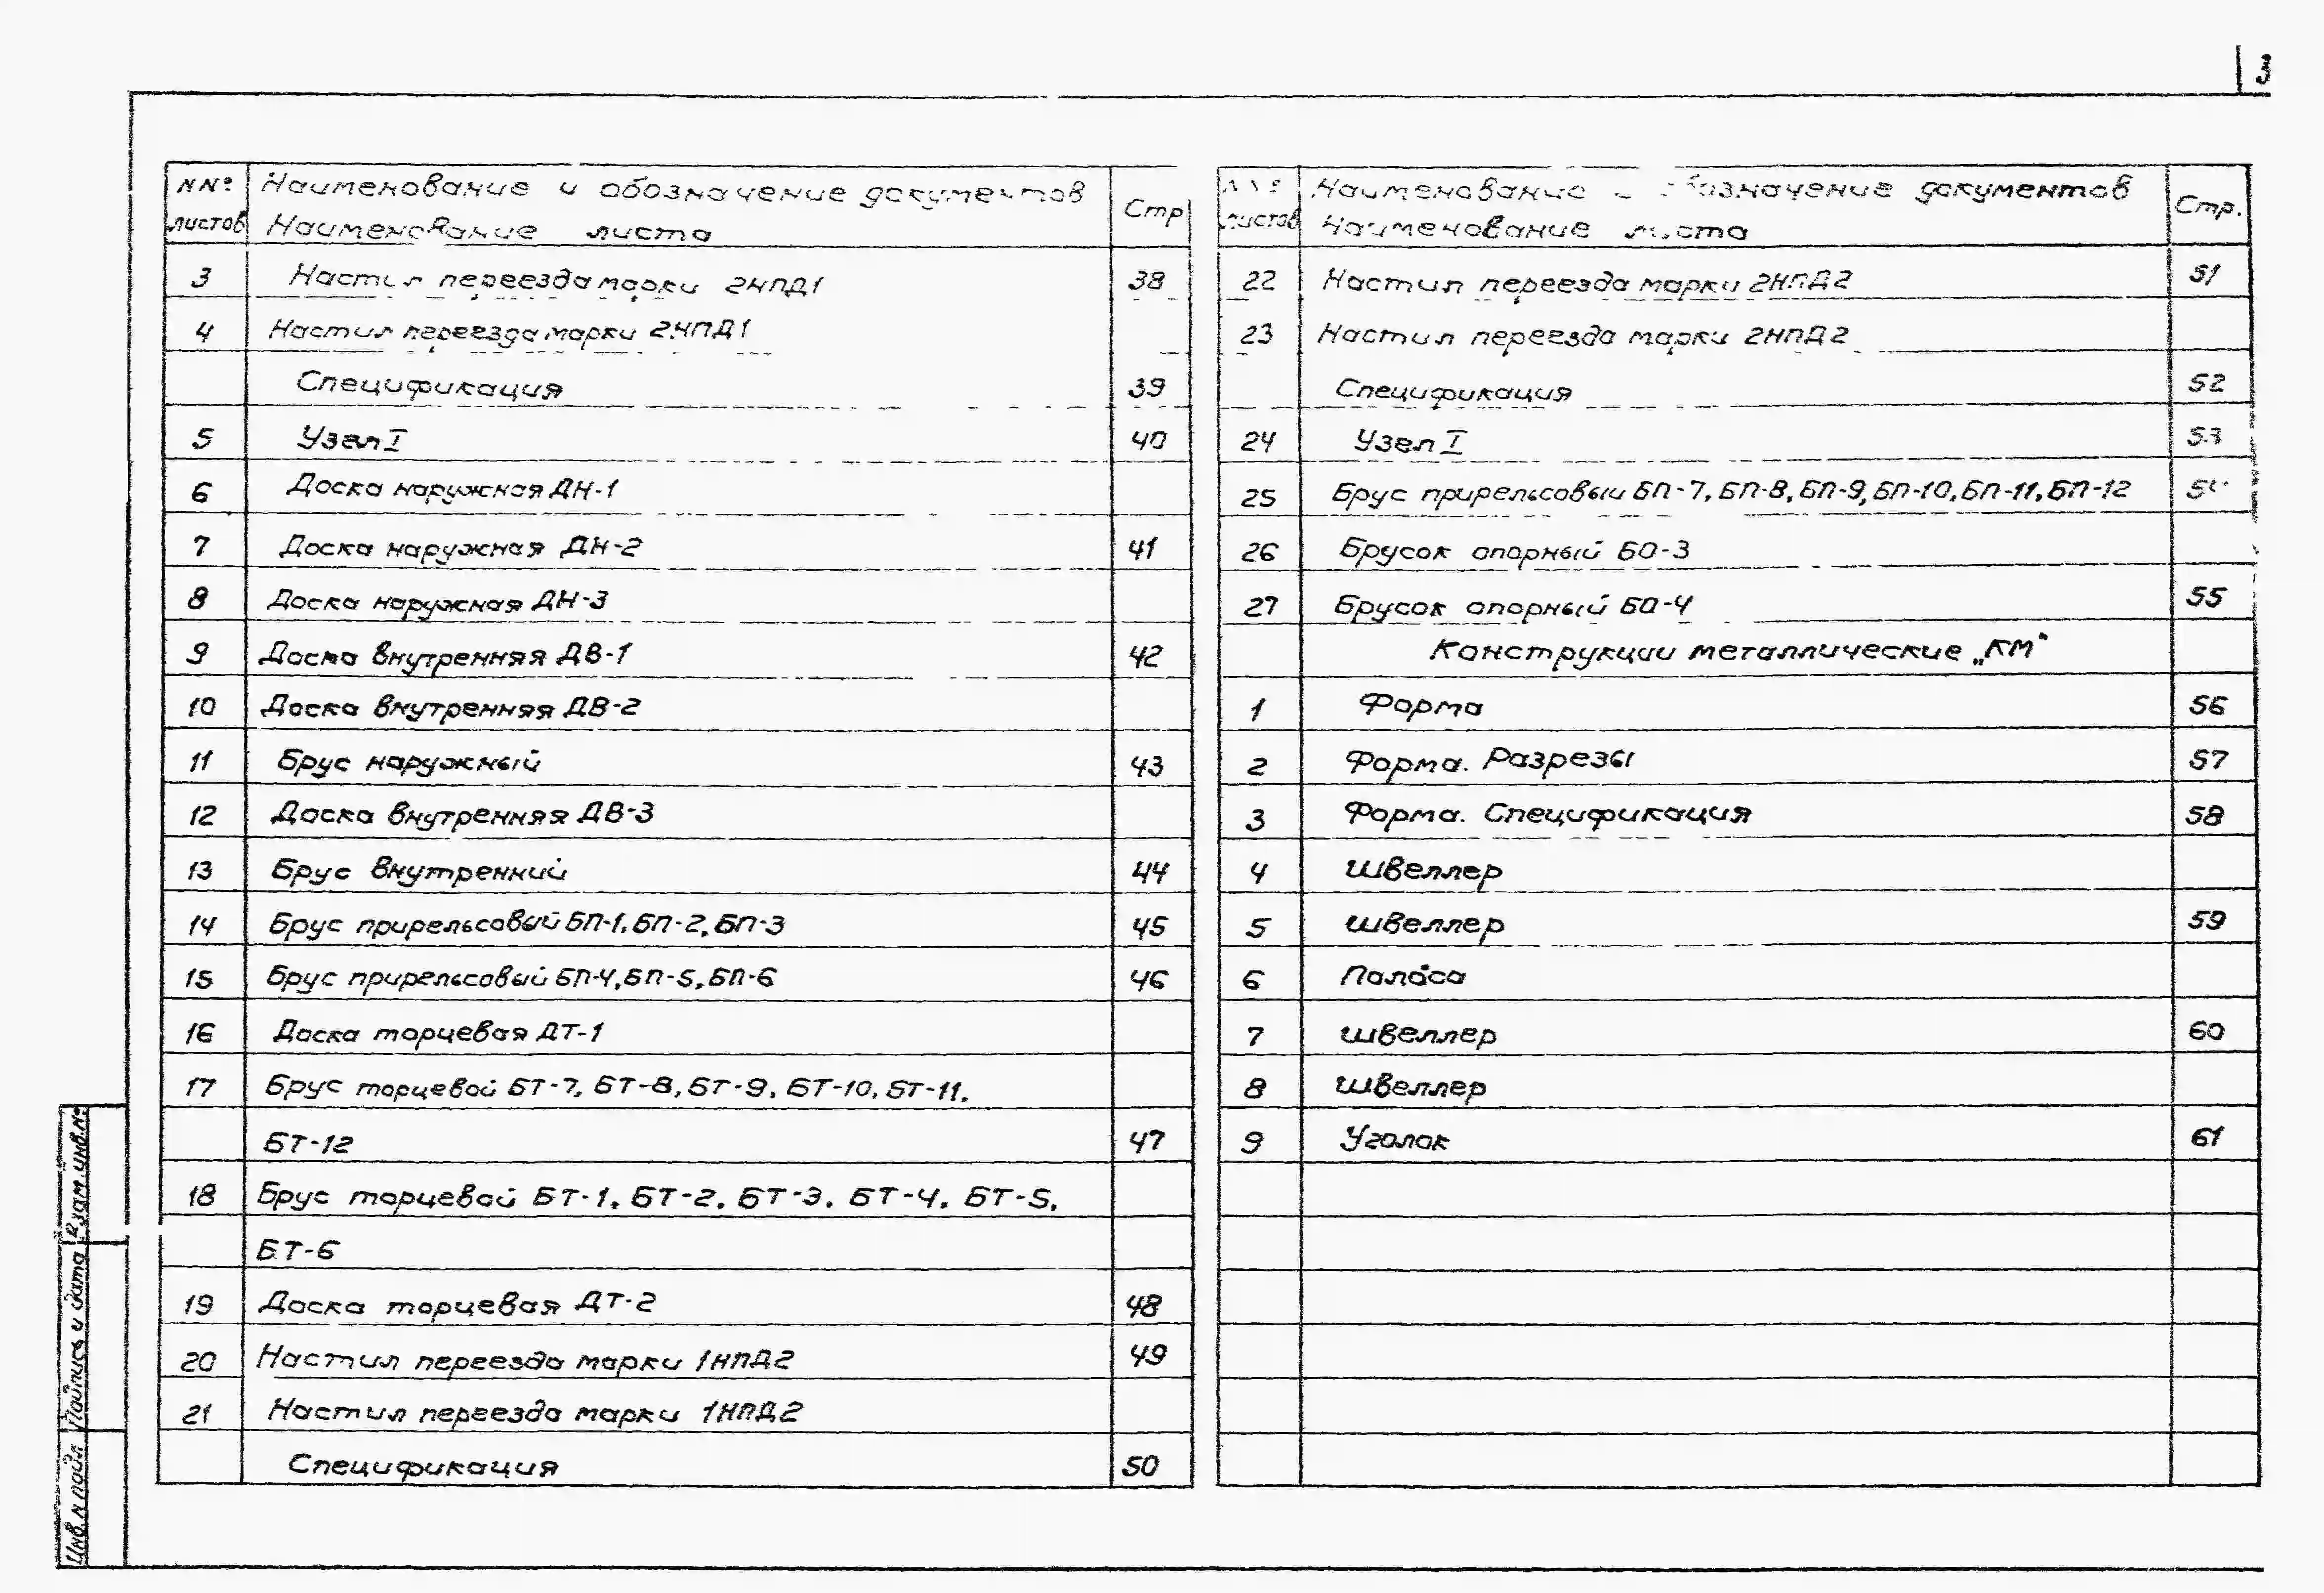 3
NNº листов Наименование и обозначение документов Стр
Наименование листа
3 Настил переезда марки 2НПД1 38
4 Настил переезда марки 2НПД1
Спецификация 39
5 Узел I 40
6 Доска наружная ДН-1
7 Доска наружная ДН-2 41
8 Доска наружная ДН-3
9 Доска внутренняя ДВ-1 42
10 Доска внутренняя ДВ-2
11 Брус наружный 43
12 Доска внутренняя ДВ-3
13 Брус внутренний 44
14 Брус прирельсовый БП-1, БП-2, БП-3 45
15 Брус прирельсовый БП-4, БП-5, БП-6 46
16 Доска торцевая ДТ-1
17 Брус торцевой БТ-7, БТ-8, БТ-9, БТ-10, БТ-11,
БТ-12 47
18 Брус торцевой БТ-1, БТ-2, БТ-3, БТ-4, БТ-5,
БТ-6
19 Доска торцевая ДТ-2 48
20 Настил переезда марки 1НПД2 49
21 Настил переезда марки 1НПД2
Спецификация 50
листов Наименование обозначение документов Стр.
Наименование листа
22 Настил переезда марки 2НПД2 51
23 Настил переезда марки 2НПД2
Спецификация 52
24 Узел I 53
25 Брус прирельсовый БП-7, БП-8, БП-9, БП-10, БП-11, БП-12
26 Брусок опорный БО-3
27 Брусок опорный БО-4 55
Конструкции металлические „КМ"
1 Форма 56
2 Форма. Разрезы 57
3 Форма. Спецификация 58
4 Швеллер
5 Швеллер 59
6 Полоса
7 Швеллер 60
8 Швеллер
9 Уголок 61
Взам. инв. №
Подпись и дата
Инв. N подл